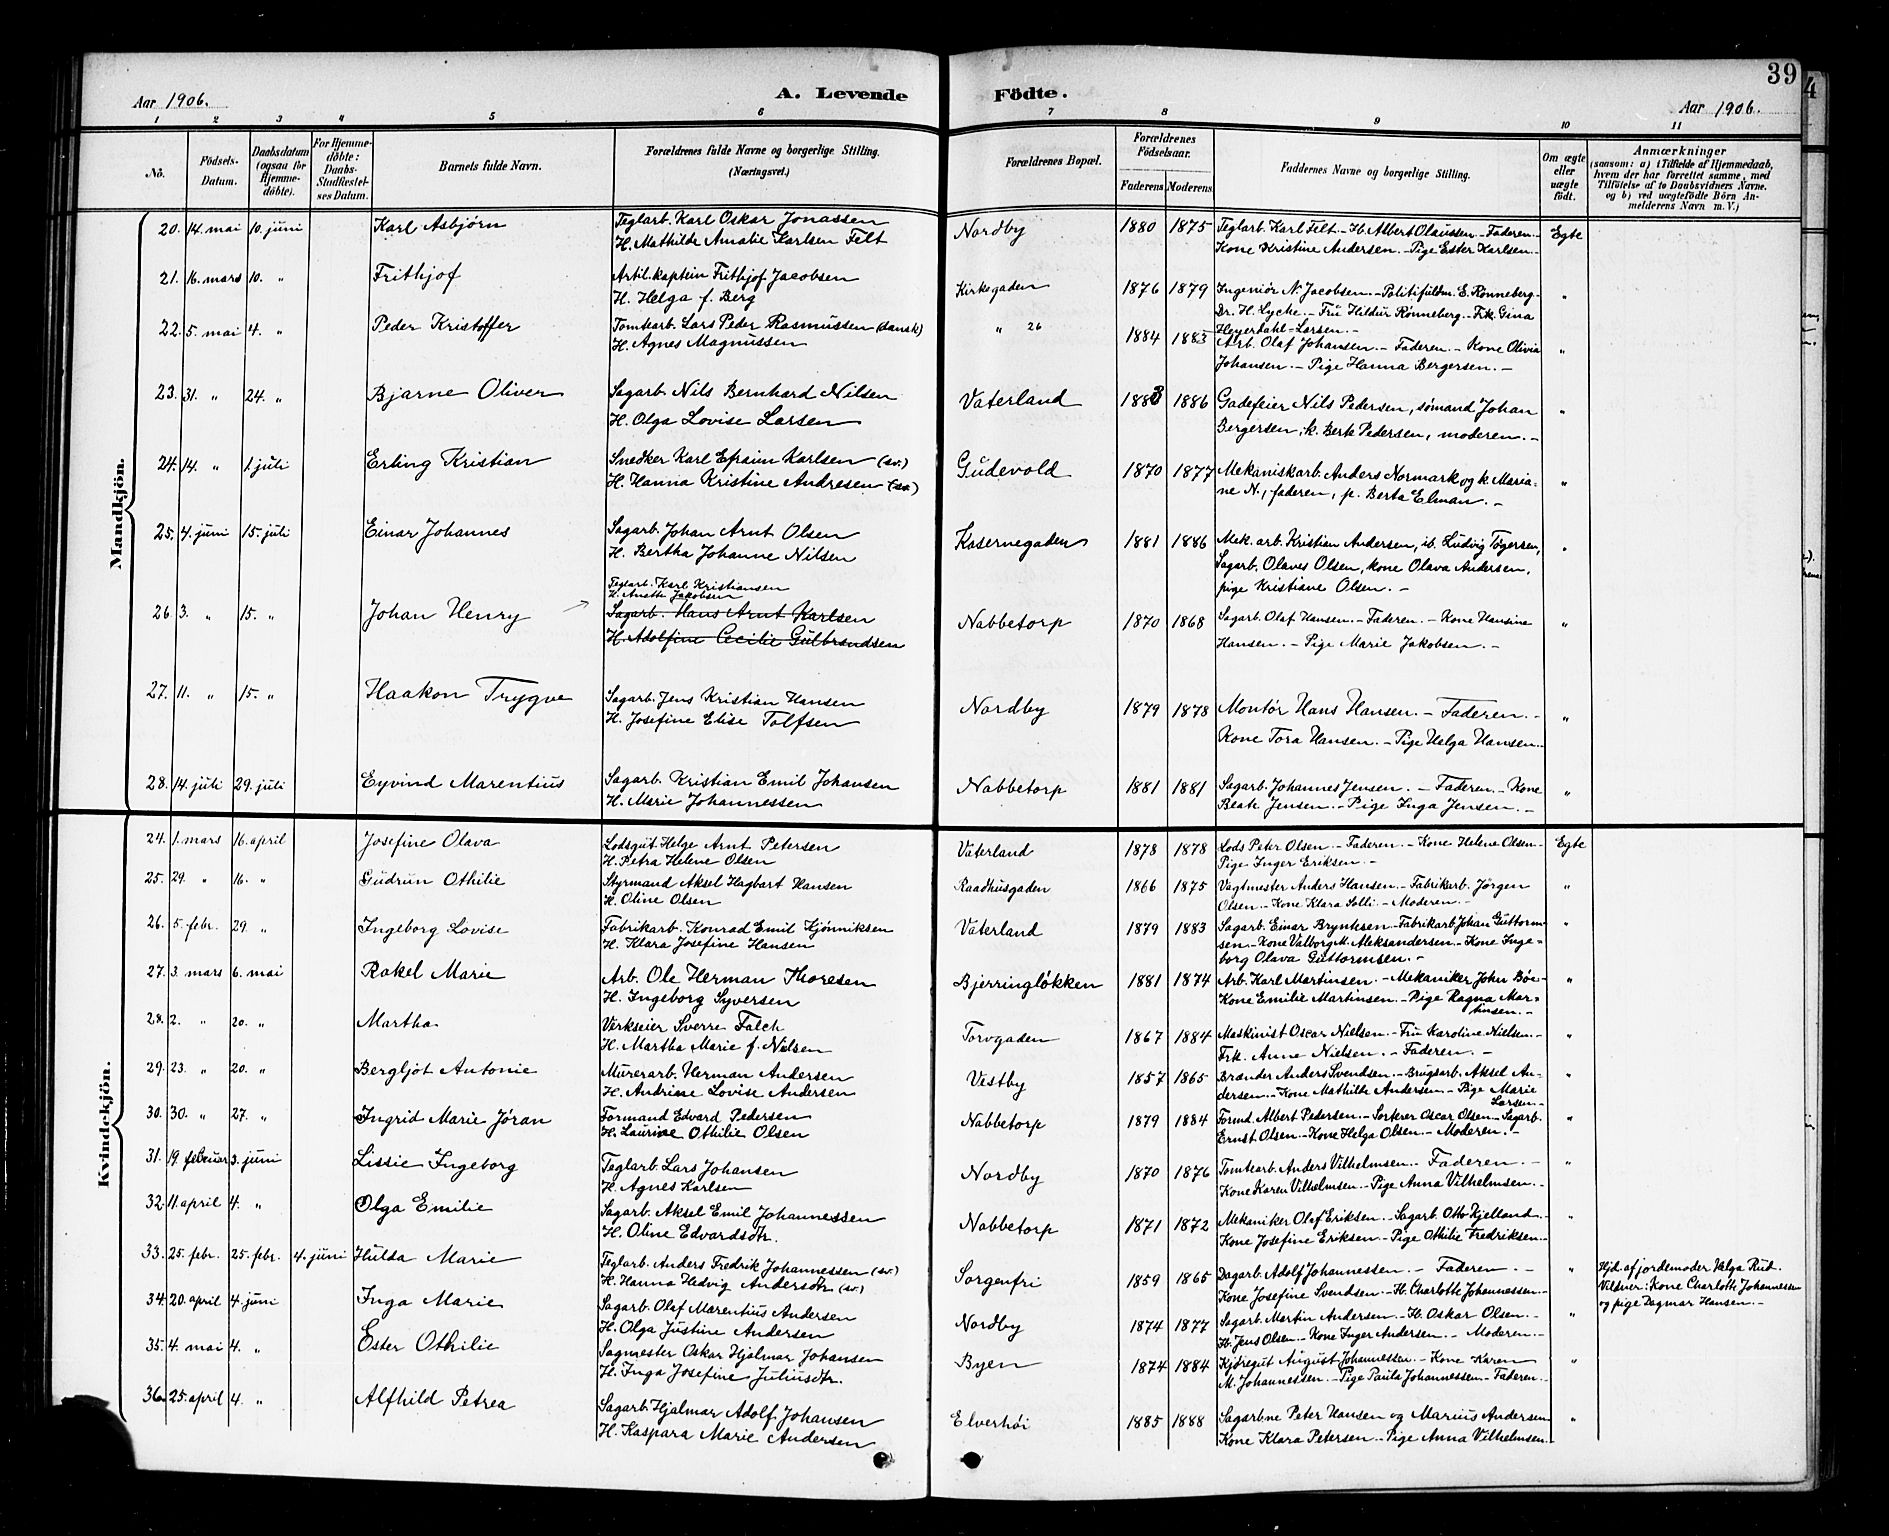 39
4
Aar 1906.
A. Levende Födte.
Aar 1906.
1 2 3 4 5 6 7 8 9 10 11
No. Födsels-Datum. Daabsdatum (ogsaa for Hjemme-döbte). For Hjemme-döbte: Daabs-Stadfæstel-ses Datum. Barnets fulde Navn. Forældrenes fulde Navne og borgerlige Stilling. (Næringsvei.) Forældrenes Bopæl. Forældrenes Födselsaar. Faderens Moderens Faddernes Navne og borgerlige Stilling. Om ægte eller uægte födt. Anmærkninger (saasom: a) i Tilfælde af Hjemmedaab, hvem der har forrettet samme, med Tilföielse af to Daabsvidners Navne, og b) ved uægtefödte Börn An-melderens Navn m. V.)
Mandkjön.
20. 14. mai 10. juni Karl Asbjørn Teglarb. Karl Oskar Jonassen Nordby 1880 1875 Teglarb. Karl Felt - H. Albert Olaussen - Faderen - Egte
H. Mathilde Amalie Karlsen Felt Kone Kristine Andersen - Pige Ester Karlsen -
21. 16. mars 10. " Frithjof Artil.kaptein Frithjof Jacobsen Kirkegaden 1876 1879 Ingeniør N. Jacobsen - Politifuldm. E. Rønneberg - "
H. Helga f. Berg Dr. H. Lyche - Fru Hildur Rønneberg - Frk. Gina
Heyerdahl-Larsen. -
22. 5. mai 4. " Peder Kristoffer Tomtearb. Lars Peder Rasmussen (dansk) " 26 1884 1883 Arb. Olaf Johansen. - Faderen. - Kone Olivia "
H. Agnes Magnussen Johansen. - Pige Hanna Bergersen. -
23. 31. " 24. " Bjarne Oliver Sagarb. Nils Bernhard Nilsen Vaterland 1883 1886 Gadefeier Nils Pedersen, sømand Johan "
H. Olga Lovise Larsen Bergersen, k. Berte Pedersen, moderen. -
24. 14. " 1. juli Erling Kristian Snedker Karl Efraim Karlsen (sv.) Gudevold 1870 1877 Mekaniskarb. Anders Normark og k. Maria- "
H. Hanna Kristine Andresen (sv.) ne N., faderen, p. Berta Elman. -
25. 4. juni 15. juli Einar Johannes Sagarb. Johan Arnt Olsen Kasernegaden 1881 1886 Mek. arb. Kristian Andersen, ib. Ludvig Tøgersen, "
H. Bertha Johanne Nilsen Sagarb. Olaves Olsen, kone Olava Andersen,
pige Kristiane Olsen. -
Teglarb. Karl Kristiansen
H. Anette Jakobsen
26. 3. " 15. " Johan Henry Sagarb. Hans Arnt Karlsen Nabbetorp 1870 1868 Sagarb. Olaf Hansen. - Faderen. - Kone Hansine "
H. Adolfine Cecilie Gulbrandsen Hansen. - Pige Marie Jakobsen. -
27. 11. " 15. " Haakon Trygve Sagarb. Jens Kristian Hansen Nordby 1879 1878 Montør Hans Hansen. - Faderen. - "
H. Josefine Elise Tolfsen Kone Tora Hansen. - Pige Helga Hansen. -
28. 14. juli 29. juli Eyvind Marentius Sagarb. Kristian Emil Johansen Nabbetorp 1881 1881 Sagarb. Johannes Jensen. - Faderen. - Kone "
H. Marie Johannessen Beate Jensen. - Pige Inga Jensen. -
Kvindekjön.
24. 1. mars 16. april Josefine Olava Lodsgut Helge Arnt Petersen Vaterland 1878 1878 Lods Peter Olsen - Faderen - Kone Helene Olsen - Egte
H. Petra Helene Olsen Pige Inger Eriksen. -
25. 29. " 16. " Gudrun Othilie Styrmand Aksel Hagbart Hansen Raadhusgaden 1866 1875 Vagtmester Anders Hansen. - Fabrikarb. Jørgen "
H. Oline Olsen Olsen - Kone Klara Solli. - Moderen. -
26. 5. febr. 29. " Ingeborg Lovise Fabrikarb. Konrad Emil Kjønniksen Vaterland 1879 1883 Sagarb. Einar Bryntesen - Fabrikarb. Johan Guttorm- "
H. Klara Josefine Hansen sen - Kone Valborg M. Aleksandersen - Kone Inge-
borg Olava Guttormsen. -
27. 3. mars 6. mai Rakel Marie Arb. Ole Herman Thoresen Bjerringløkken 1881 1874 Arb. Karl Martinsen. - Mekaniker John Bøe - "
H. Ingeborg Syversen Kone Emilie Martinsen - Pige Ragna Mar-
tinsen. -
28. 2. " 20. " Martha Verkseier Sverre Falch Torvgaden 1867 1884 Maskinist Oscar Nielsen - Fru Karoline Nielsen - "
H. Martha Marie f. Nielsen Frk. Anne Nielsen. - Faderen. -
29. 23. " 20. " Bergljot Antonie Murerarb. Herman Andersen Vestby 1857 1865 Brænder Anders Svendsen. - Brugsarb. Aksel An- "
H. Andriane Lovise Andersen dersen - Kone Mathilde Andersen - Pige Marie
Larsen -
30. 30. " 27. " Ingrid Marie Jøran Formand Edvard Pedersen Nabbetorp 1879 1884 Formd. Albert Pedersen. - Sorterer Oscar Olsen - Sagarb. "
H. Laurine Othilie Olsen Ernst Olsen. - Kone Helga Olsen. - Moderen. -
31. 19. februar 3. juni Lissie Ingeborg Teglarb. Lars Johansen Nordby 1870 1876 Tomtearb. Anders Vilhelmsen. - Faderen. - "
H. Agnes Karlsen Kone Karen Vilhelmsen - Pige Anna Vilhelmsen. -
32. 11. april 4. " Olga Emilie Sagarb. Aksel Emil Johannessen Nabbetorp 1871 1872 Mekaniker Olaf Eriksen. - Sagarb. Otto Kjelland. - "
H. Oline Edvardsdtr. Kone Josefine Eriksen - Pige Othilie Fredriksen. -
33. 25. febr. 25. febr. 4. juni Hulda Marie Teglarb. Anders Fredrik Johannessen (sv.) Sorgenfri 1859 1865 Dagarb. Adolf Johannessen - Faderen. - " Hjd. af jordemoder Helga Rud.
H. Hanna Hedvig Andersdtr (sv.) Kone Josefine Svendsen - H. Charlotte Johannessen - Vidner: Kone Charlotte Johannessen
og pige Dagmar Hansen. -
34. 20. april 4. juni Inga Marie Sagarb. Olaf Marentius Andersen Nordby 1874 1877 Sagarb. Martin Andersen - H. Oskar Olsen. - "
H. Olga Justine Andersen H. Jens Olsen. - Kone Inger Andersen. - Moderen. -
35. 4. mai 4. " Ester Othilie Sagmester Oskar Hjalmar Johansen Byen 1874 1884 Kjøregut August Johannessen. - Kone Karen "
H. Inga Josefine Juliusdtr. M. Johannessen. - Pige Paula Johannessen - Faderen. -
36. 25. april 4. " Alfhild Petrea Sagarb. Hjalmar Adolf Johansen Elverhøi 1885 1888 Sagarbne Peter Hansen og Marius Andersen "
H. Kaspara Marie Andersen Kone Klara Petersen. - Pige Anna Vilhelmsen. -